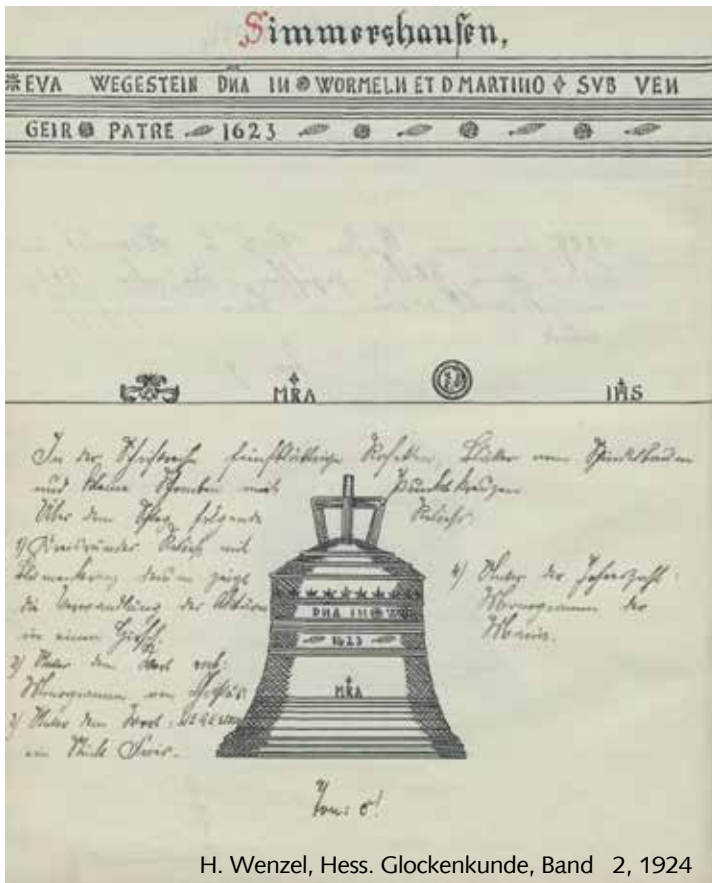 Simmershausen,
EVA WEGESTEIN DNA IN WORMELN ET D MARTINO SVB VEN
GEIR PATRE 1623
MRA IHS
In der Schriftreihe fünfblättrige Rosetten, Blätter vom
und kleine Rhomben mit Punktkreuzen.
Über dem Schlag folgende Reliefs:
1) Kreisrundes Relief mit
Blumenkranz, darin zeigt
die Verwandlung des Aktäon
in einen Hirsch.
2) Unter dem Wort
Monogramm von Christus
3) Unter dem Wort: WEGESTEIN
ein Stück Fries.
4) Unter der Jahreszahl:
Monogramm der
Maria.
DNA IN WO
1623
MRA
Ton:
H. Wenzel, Hess. Glockenkunde, Band 2, 1924